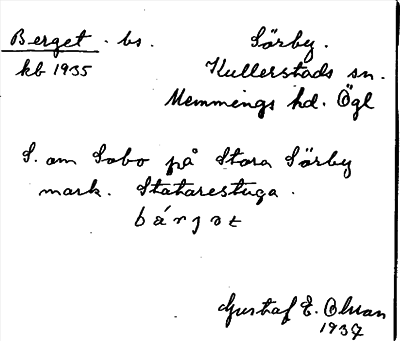 Berget. bs. Sörby.
kb 1935 Kullerstads sn.
Memmings hd. Ögl
S. om Sobo på Stora Sörby
mark. Statarestuga.
Gustaf E. Olsson
1937